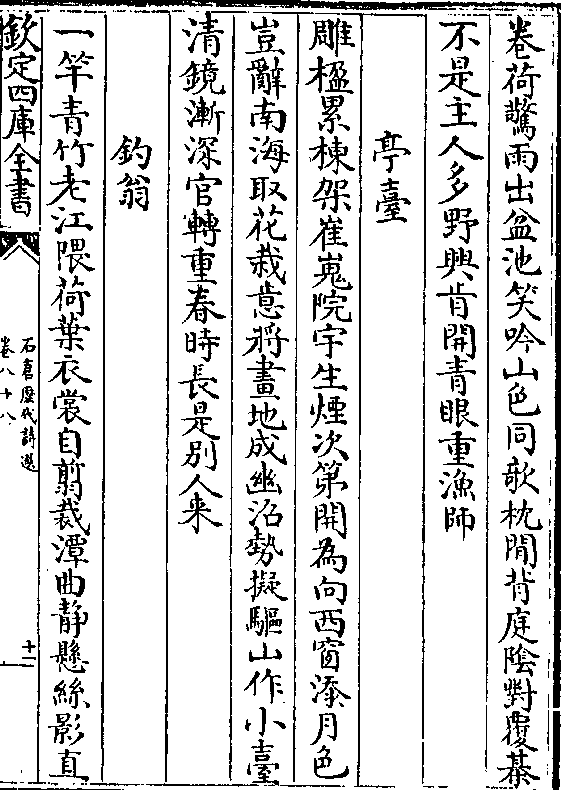 卷荷驚雨出盆池笑吟山色同欹枕閒背庭陰對覆棊
不是主人多野興肯開青眼重漁師
亭臺
雕楹累棟架崔嵬院宇生煙次第開為向西窗添月色
豈辭南海取花栽意將畫地成幽沼勢擬驅山作小臺
清鏡漸深官轉重春時長是別人来
釣翁
一竿青竹老江隈荷葉衣裳自翦裁潭曲静懸絲影直
欽定四庫全書
石倉歷代詩選
卷八十八
十二